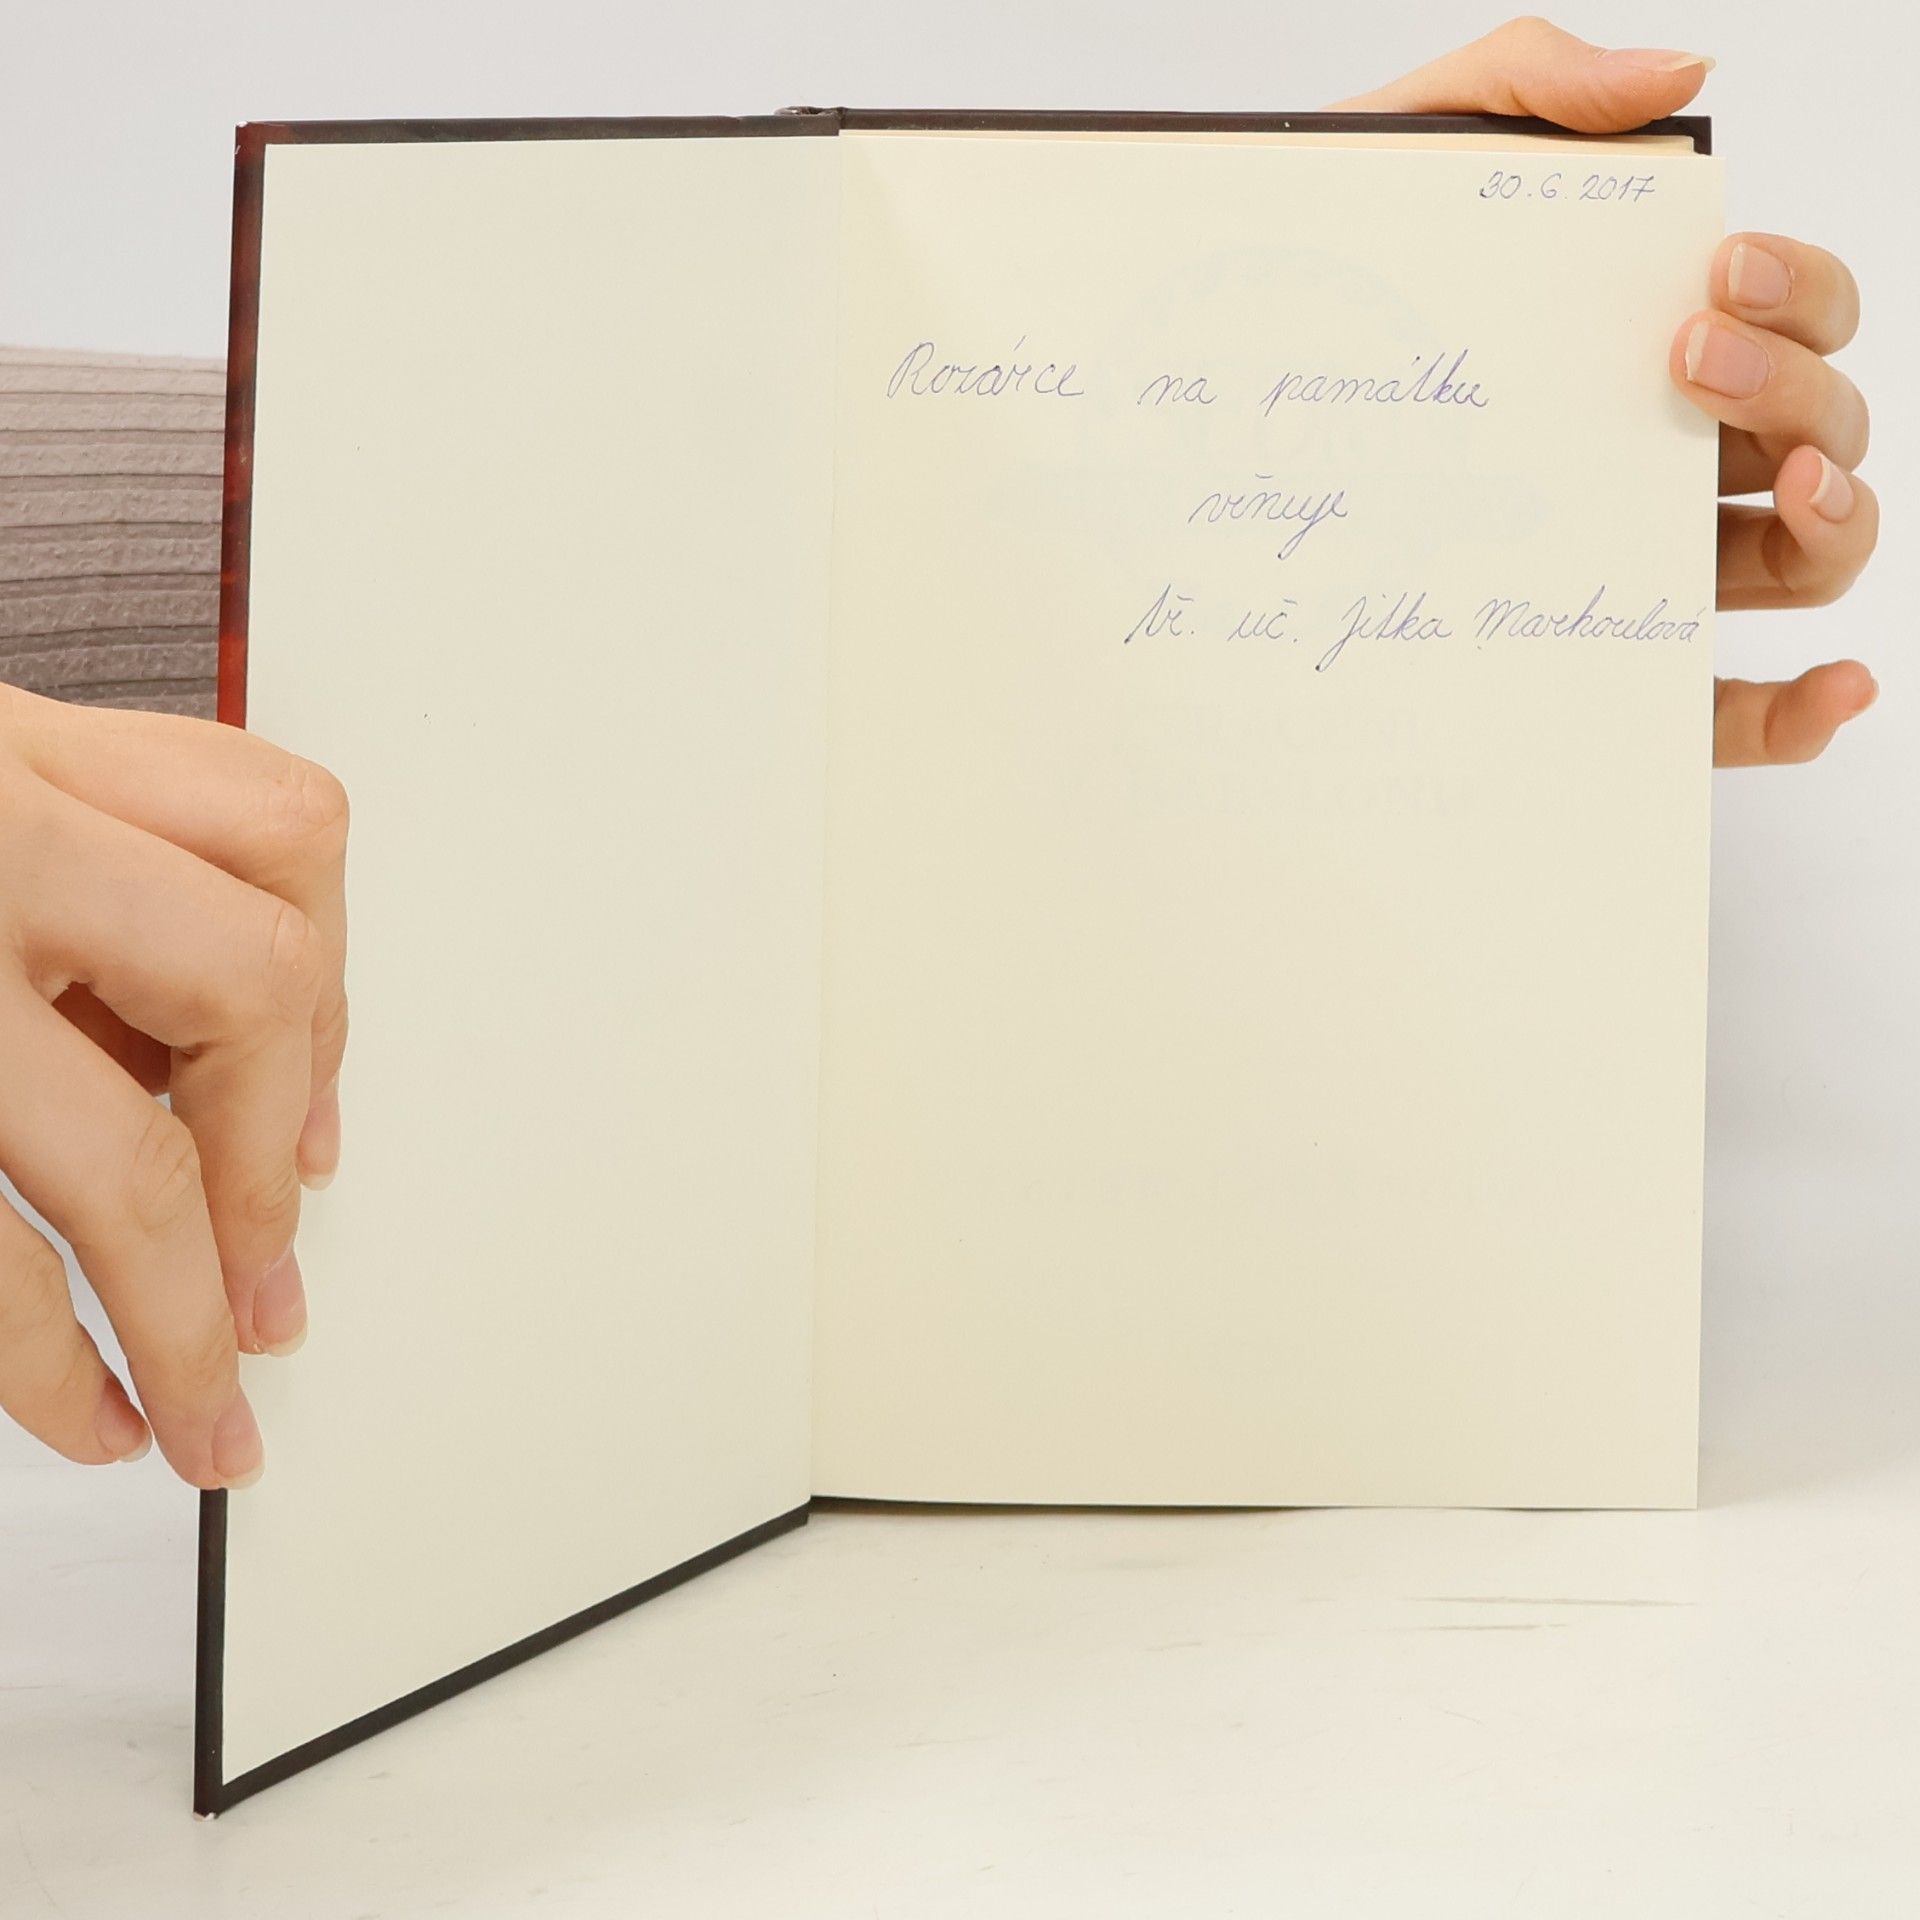 30.6.2017
Rozárce na památku
věnuje
tř. uč. Jitka Markoulová